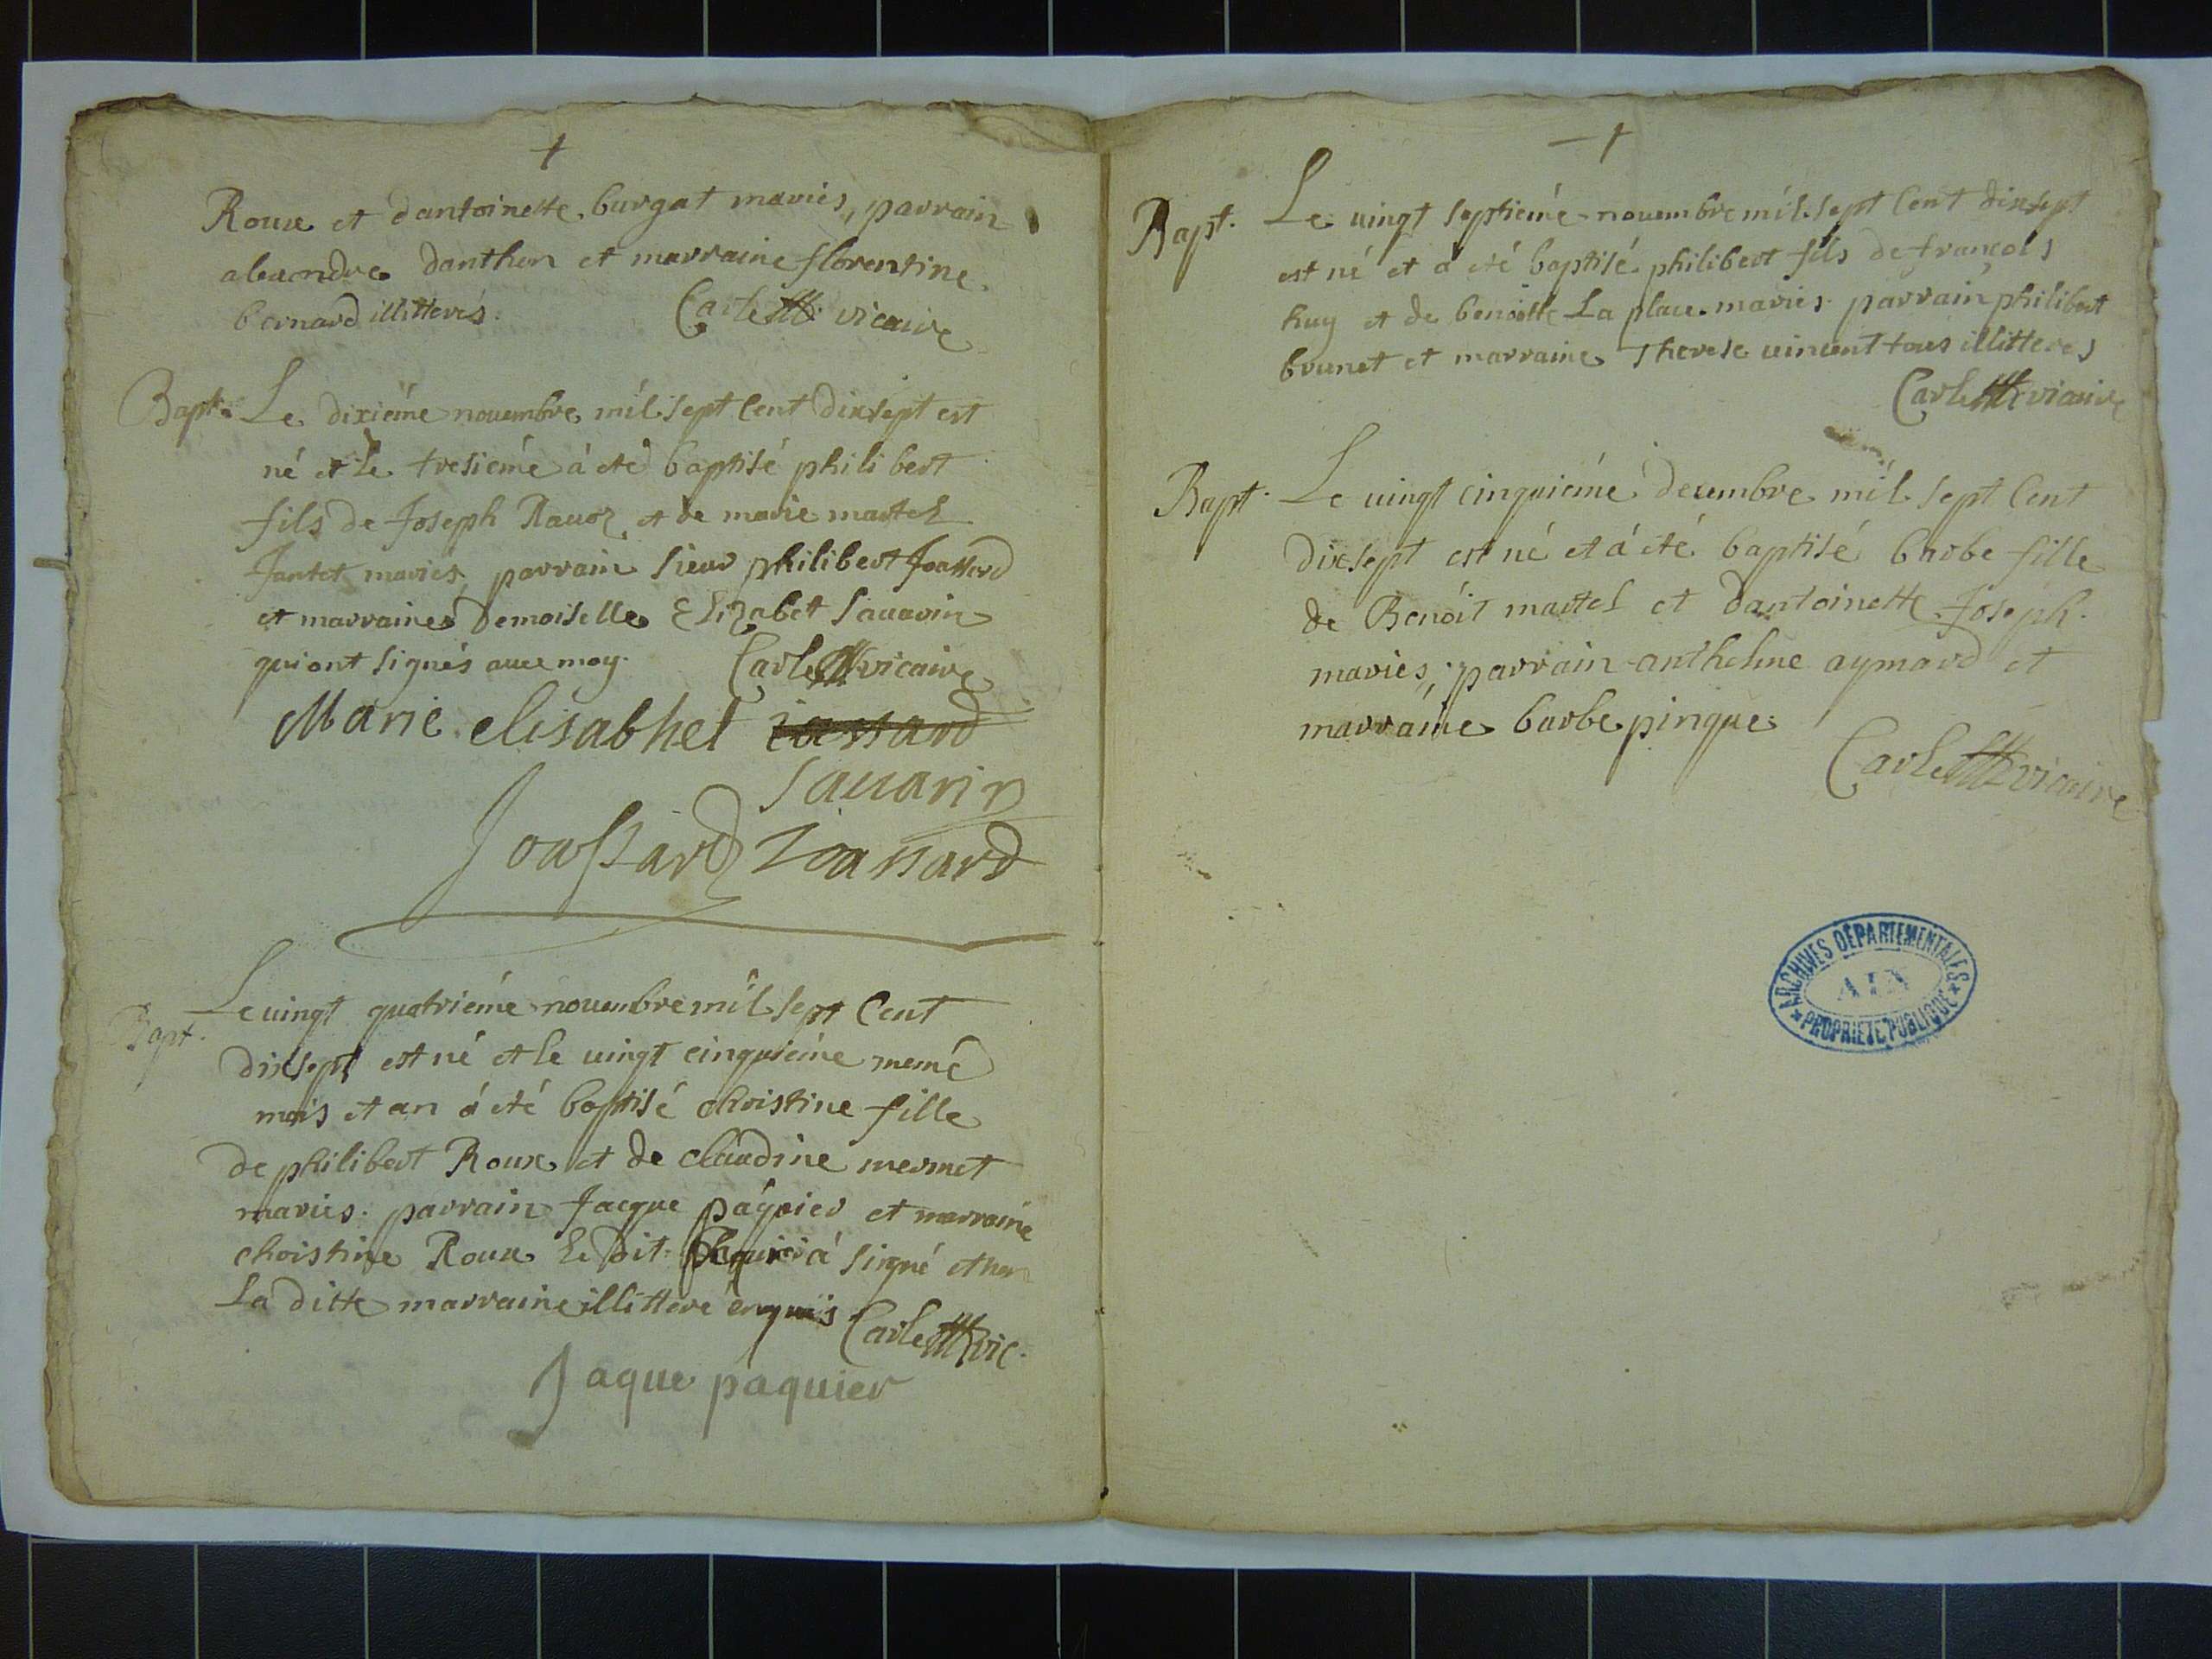 +
Roux et dantoinette burgat mariés, parrain
alexandre danthon et marraine florentine
bernard illitterés. Carle vicaire
Bapt. Le dixiéme nouembre mil sept Cent dixsept est
né et le tresiéme á eté baptisé philibert
fils de Joseph Rauoz et de marie martel
Jantet mariés, parrain Sieur philibert Joassard
et marraine Demoiselle Elizabet Sauarin
qui ont signés auec moy. Carle vicaire
Marie elisabhet iassard
Sauarin
Joassard Joassard
Bapt. Le uingt quatriéme nouembre mil sept Cent
dixsept est né et le uingt cinquiéme memé
mois et an á eté baptisé christine fille
de philibert Roux et de claudine mermet
mariés. parrain Jacque páquier et marraine
christine Roux Le dit paquier á signé et non
La ditte marraine illitteré enquis Carle vic.
Jaque paquier
+
Bapt. Le uingt septiéme nouembre mil sept Cent dixsept
est né et á eté baptisé philibert fils de françois
huy et de benoitte La place mariés parrain philibert
brunet et marraine Therese uincent tous illitteres
Carle vicaire
Bapt. Le uingt cinquiéme decembre mil sept Cent
dixsept est né et á eté baptisé barbe fille
de Benoít martel et dantoinette Joseph
mariés, parrain anthelme aymard et
marraine barbe pingue
Carle vicaire
ARCHIVES DÉPARTEMENTALES
AIN
PROPRIÉTÉ PUBLIQUE